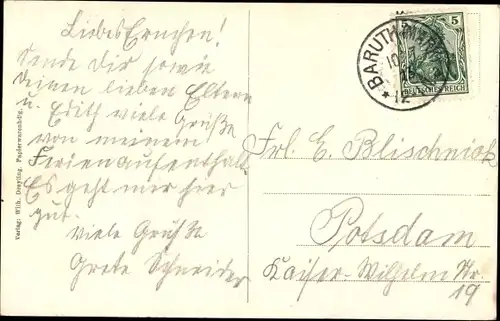 Liebes Ernchen!
Sende Dir sowie
Deinen lieben Eltern
u. Edith viele Grüße
von meinem
Ferienaufenthalt.
Es geht mir hier
gut.
Viele Grüße
Grete Schneider
Verlag: Wilh. Papierwarenhdg.
BARUTH (MARK)
12
5
DEUTSCHES REICH
Frl. E. Blischniok
Potsdam
Kaiser-Wilhelm Str.
19